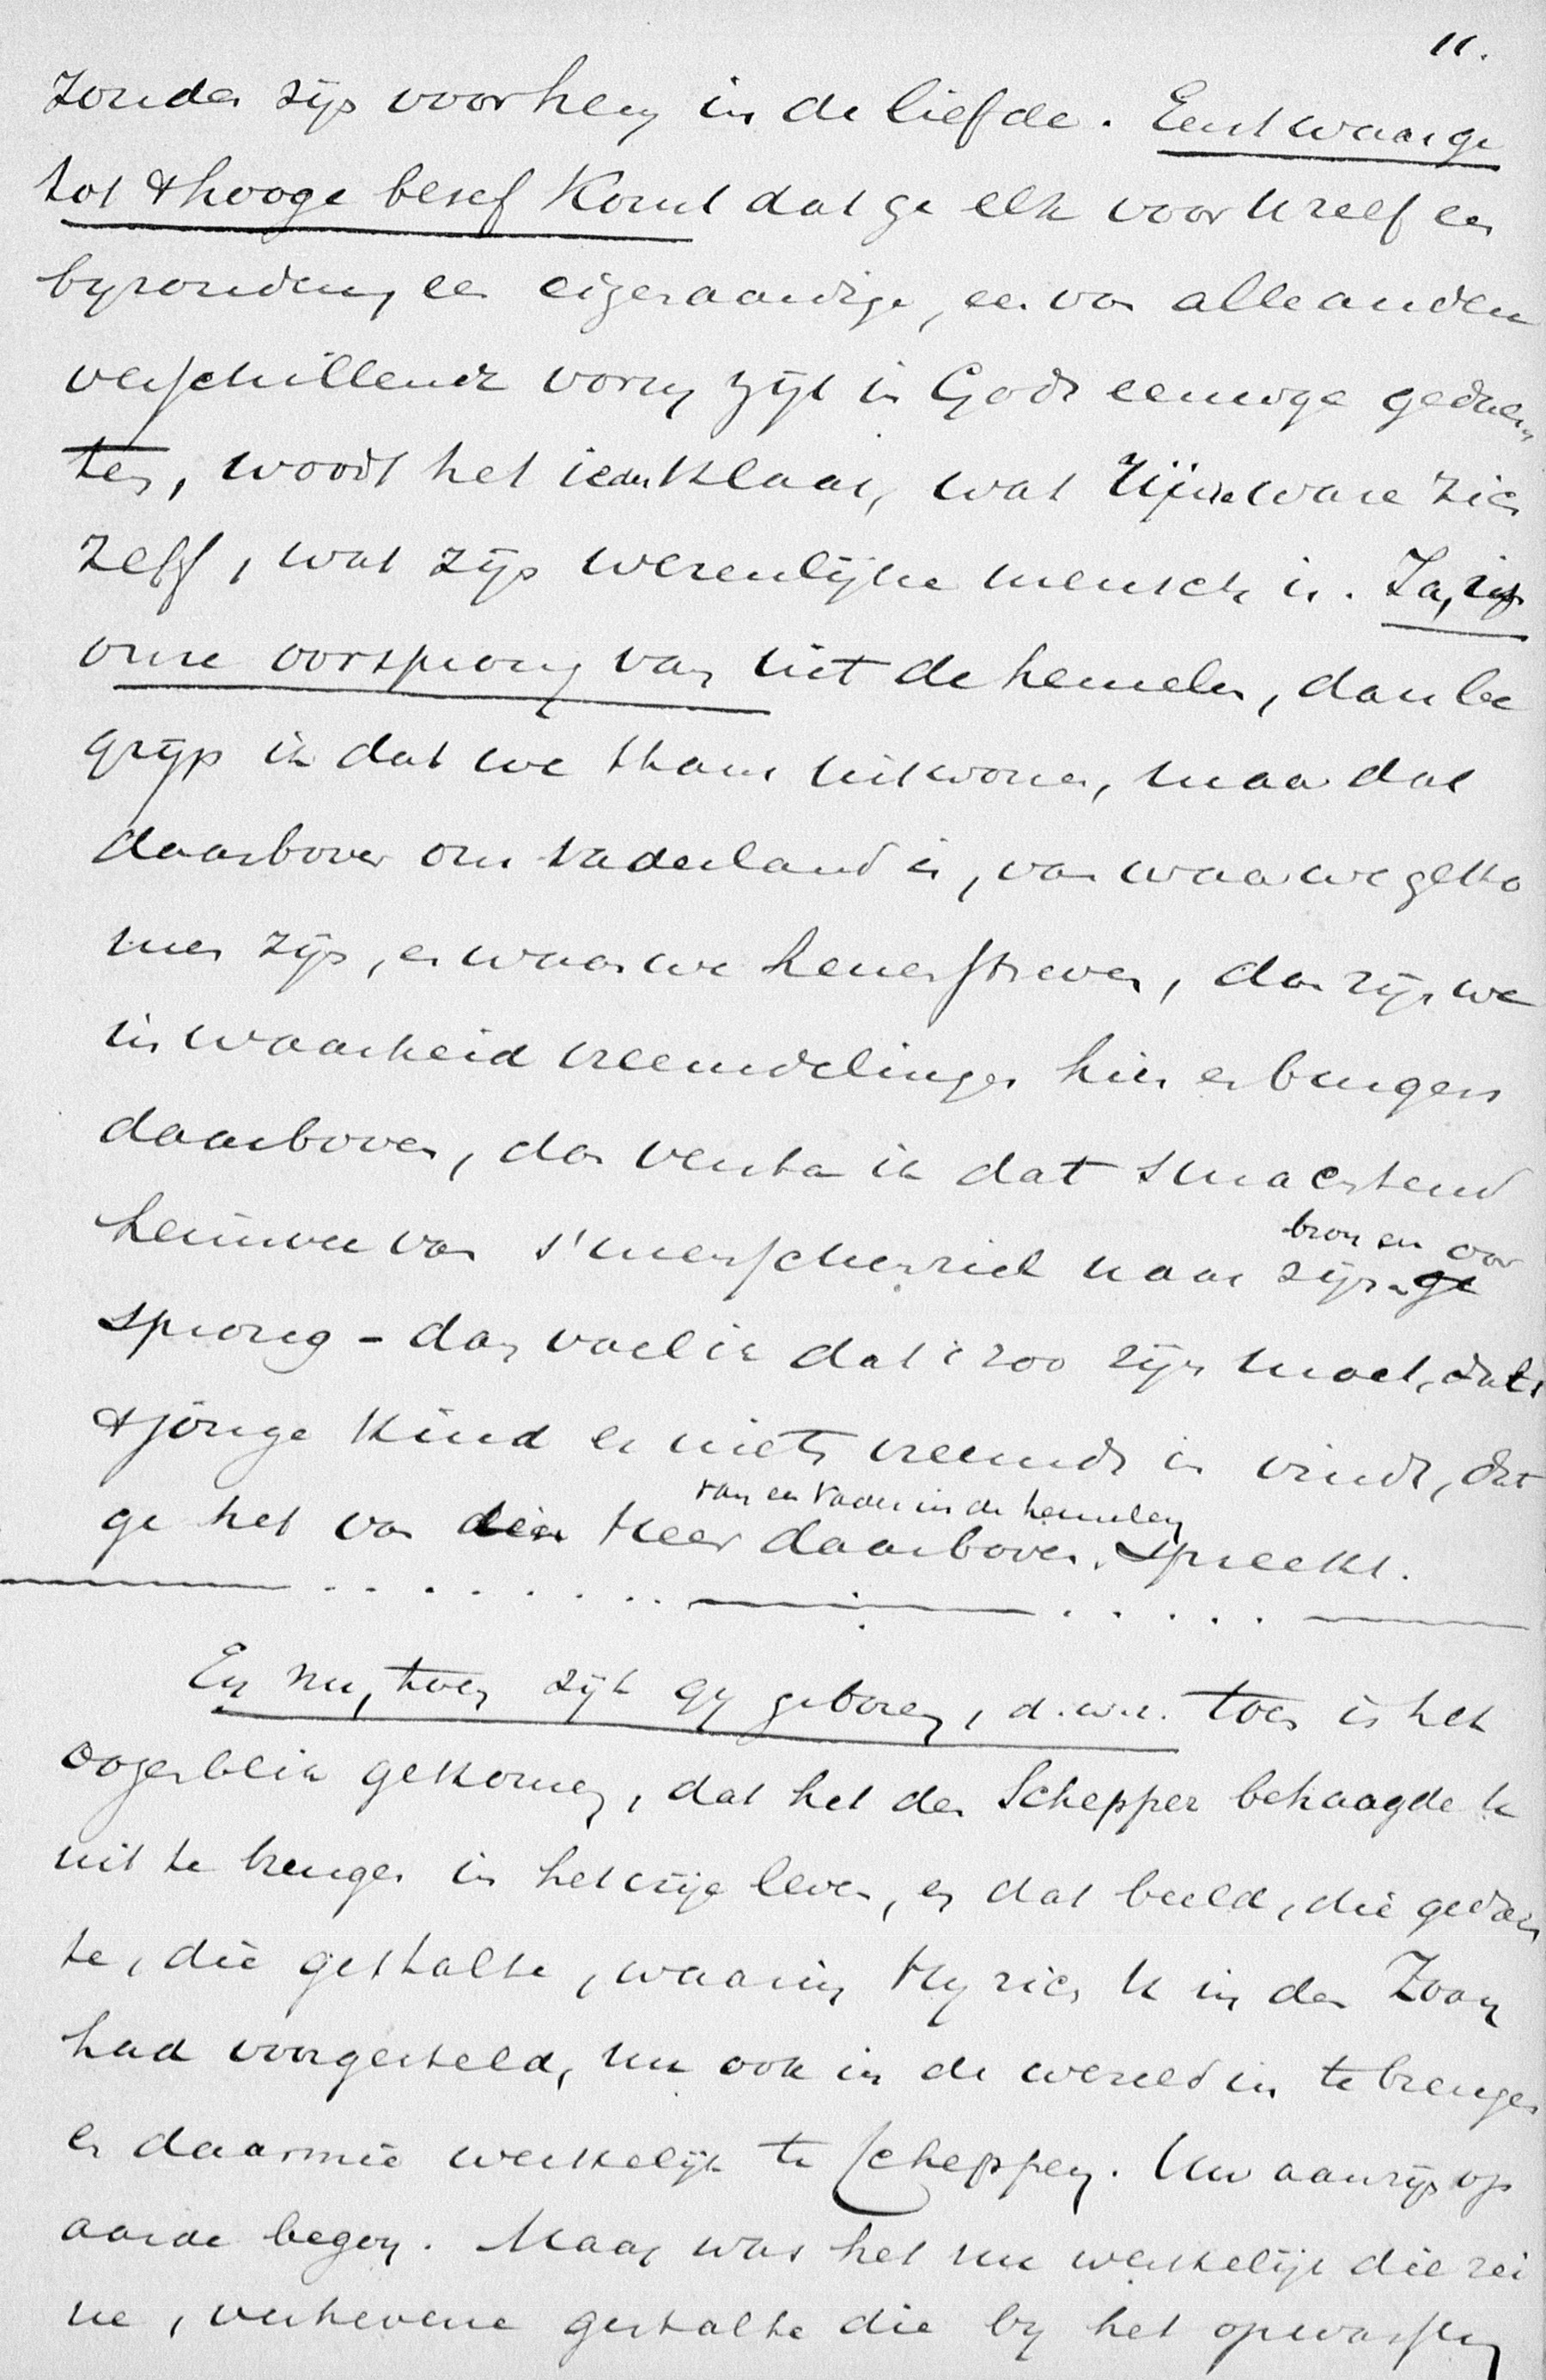 11.
zonder zijn voor hem in de liefde. Eerst waar ge
tot 't hooge besef komt dat ge elk voor Uzelf een
byzondere, een eigenaardige, een van alle anderen
verschillende vorm zijt in Gods eeuwige gedach
ten, wordt het ieder klaar, wat Zijn ware zich
zelf, wat zijn wezenlijke mensch is. Ja, zijn
onze oorsprong van uit de hemelen, dan be
grijp ik dat we thans uitwonen, maar dat
daarboven ons Vaderland is, van waar we geko
men zijn, en waar we henenstreven, dan zijn we
in waarheid vreemdelingen hier en burgers
daarboven, dan versta ik dat smachtend
heimwee van 's menschenziel naar zijn bron en oor
sprong - dan voel ik dat 't zoo zijn moet, dat
't jonge kind er niets vreemds in vindt, dat
ge het van den Heer daarboven, van een Vader in de hemelen spreekt.
En nu, toen zijt gy geboren, d.w.z. toen is het
oogenblik gekomen, dat het den Schepper behaagde U
uit te brengen in het vrije leven, en dat beeld, die gedach
te, die gestalte, waarin Hy zich U in den Zoon
had voorgesteld, nu ook in de wereld in te brengen
en daarmee werkelijk te scheppen. Uw aanzijn op
aarde begon. Maar was het nu werkelijk die rei
ne, verhevene gestalte die by het opwassen